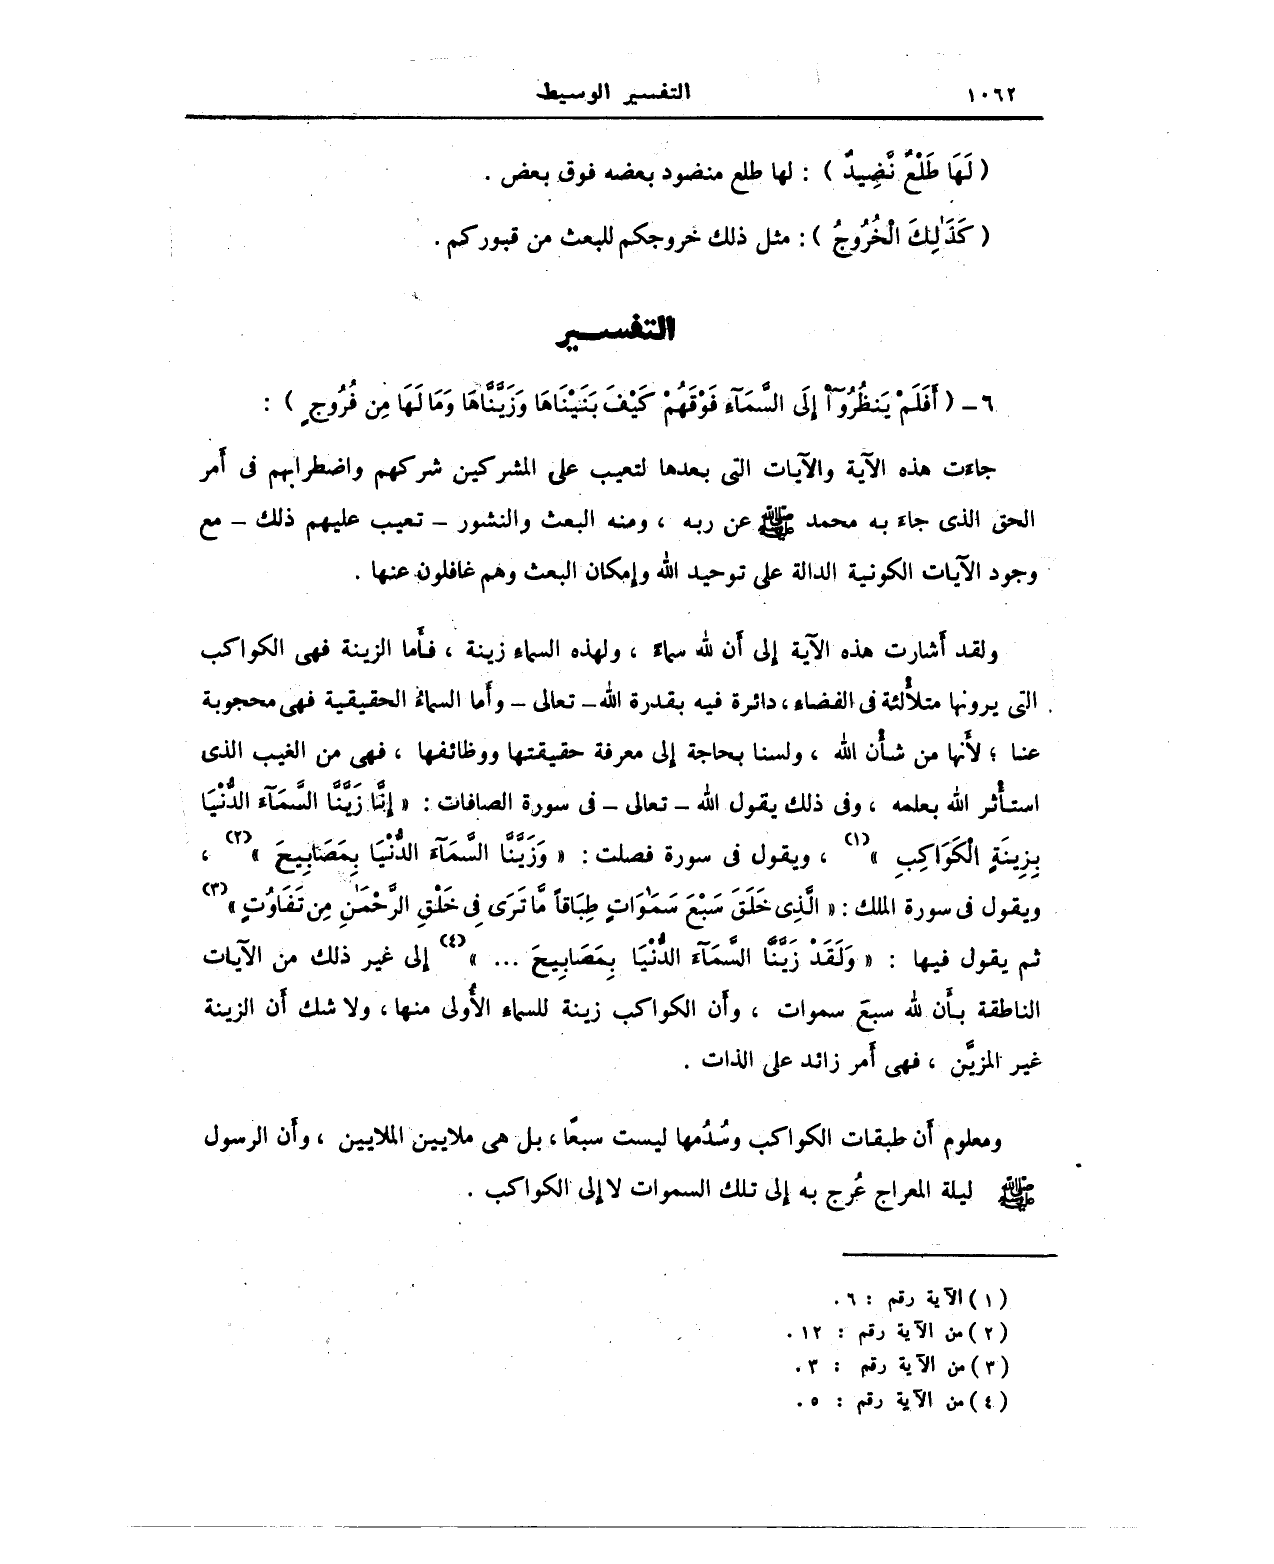 ١٠٦٢ التفسير الوسيط
( لَهَا طَلْعٌ نَّضِيدٌ ) : لها طلع منضود بعضه فوق بعض .
( كَذَٰلِكَ الْخُرُوجُ ) : مثل ذلك خروجكم للبعث من قبوركم .
التفسير
٦ – ( أَفَلَمْ يَنظُرُوٓاْ إِلَى السَّمَآءِ فَوْقَهُمْ كَيْفَ بَنَيْنَاهَا وَزَيَّنَّاهَا وَمَا لَهَا مِن فُرُوجٍ ) :
جاءت هذه الآية والآيات التى بعدها لتعيب على المشركين شركهم واضطرابهم فى أمر
الحق الذى جاء به محمد ﷺ عن ربه ، ومنه البعث والنشور – تعيب عليهم ذلك – مع
وجود الآيات الكونية الدالة على توحيد الله وإمكان البعث وهم غافلون عنها .
ولقد أشارت هذه الآية إلى أن لله سماءً ، ولهذه السماء زينة ، فأما الزينة فهى الكواكب
التى يرونها متلألئة فى الفضاء ، دائرة فيه بقدرة الله – تعالى – وأما السماءُ الحقيقية فهى محجوبة
عنا ؛ لأنها من شأن الله ، ولسنا بحاجة إلى معرفة حقيقتها ووظائفها ، فهى من الغيب الذى
استأثر الله بعلمه ، وفى ذلك يقول الله – تعالى – فى سورة الصافات : « إِنَّا زَيَّنَّا السَّمَآءَ الدُّنْيَا
بِزِينَةٍ الْكَوَاكِبِ » (١) ، ويقول فى سورة فصلت : « وَزَيَّنَّا السَّمَآءَ الدُّنْيَا بِمَصَابِيحَ » (٢) ،
ويقول فى سورة الملك : « الَّذِى خَلَقَ سَبْعَ سَمَٰوَاتٍ طِبَاقاً مَّا تَرَى فِى خَلْقِ الرَّحْمَٰنِ مِن تَفَاوُتٍ » (٣)
ثم يقول فيها : « وَلَقَدْ زَيَّنَّا السَّمَآءَ الدُّنْيَا بِمَصَابِيحَ ... » (٤) إلى غير ذلك من الآيات
الناطقة بأن لله سبعَ سموات ، وأن الكواكب زينة للسماء الأُولى منها ، ولا شك أن الزينة
غير المزيَّن ، فهى أمر زائد على الذات .
ومعلوم أن طبقات الكواكب وسُدُمها ليست سبعًا ، بل هى ملايين الملايين ، وأن الرسول
ﷺ ليلة المعراج عُرج به إلى تلك السموات لا إلى الكواكب .
( ١ ) الآية رقم : ٦ .
( ٢ ) من الآية رقم : ١٢ .
( ٣ ) من الآية رقم : ٣ .
( ٤ ) من الآية رقم : ٥ .